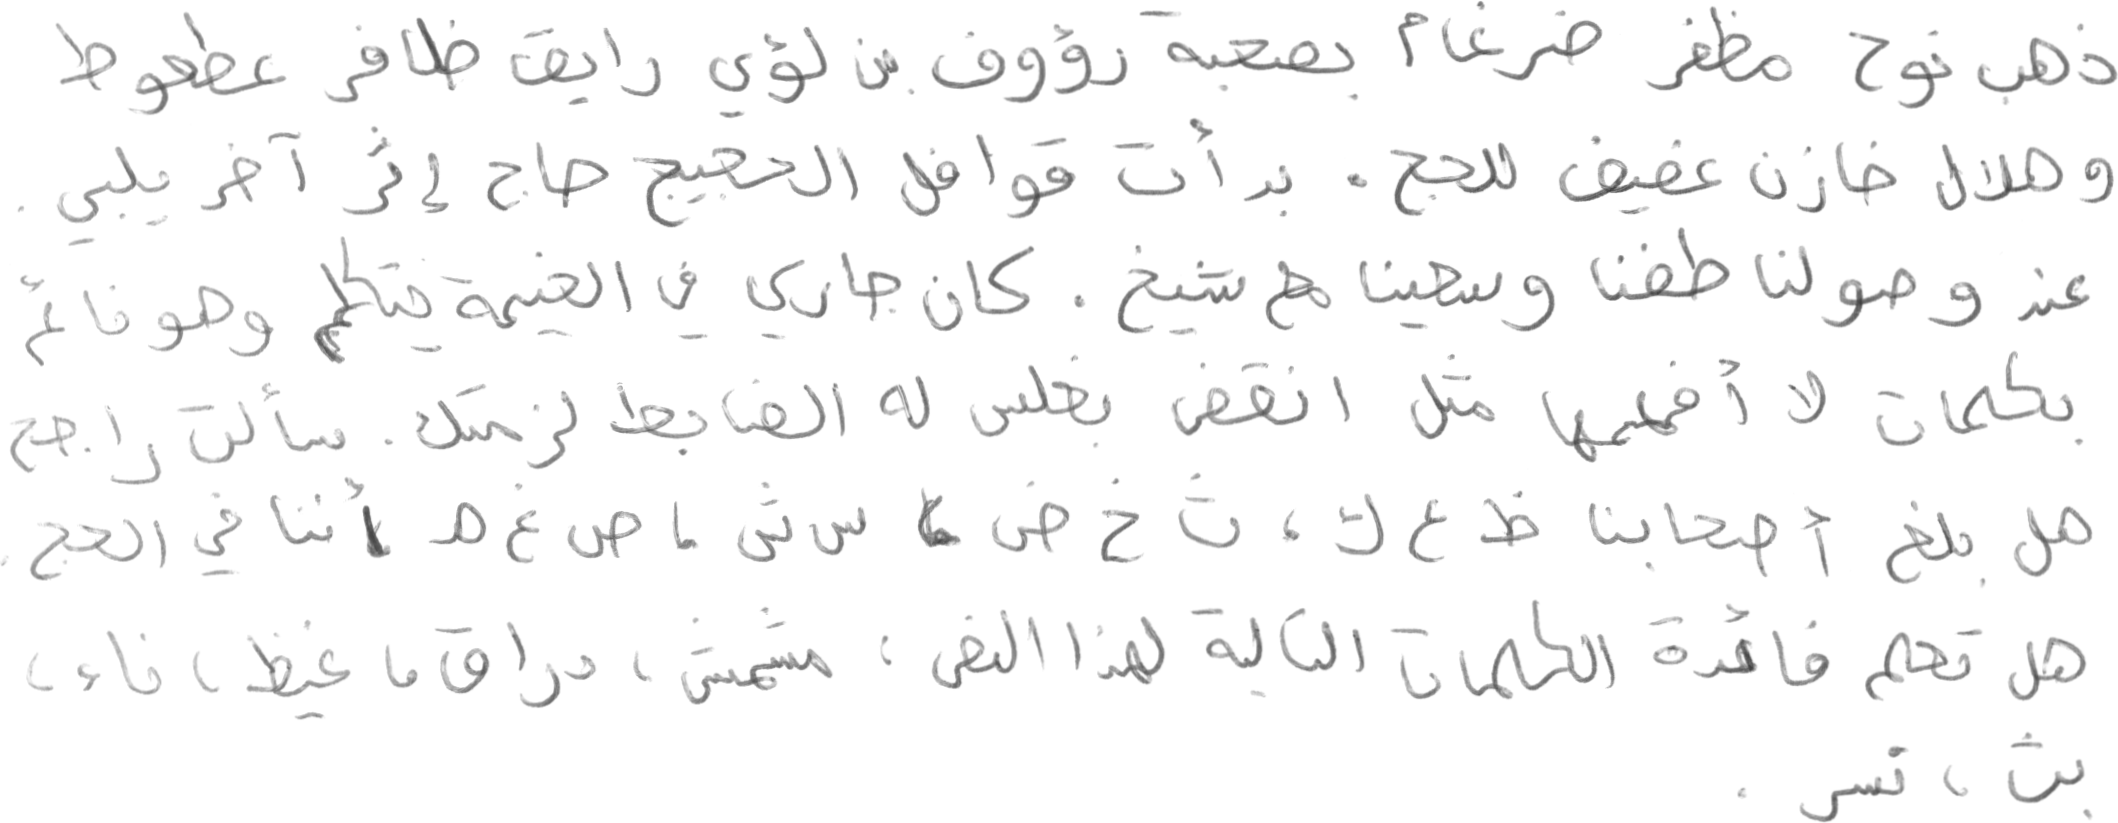 ذهب نوح مظفر ضرغام بصحبة رؤوف بن لؤي رايق ظافر عطعوط
و هلال خازن عفيف للحج . بدأت قوافل الحجيج حاج إثر آخر يلبي .
عند وصولنا طفنا وسعينا مع شيخ . كان جاري في الخيمة يتكلم وهو نائم
بكلمات لا أفهمها مثل انقض بغلس له الضابط لزمتك . سألت راجح
هل بلغ أصحابنا ظ ع ك ، ث خ ض ، س ش ، ص غ هـ أننا في الحج .
هل تعلم فائدة الكلمات التالية لهذا النص ، مشمش ، دراق ، غيظ ، ناء ،
بث ، تسر .